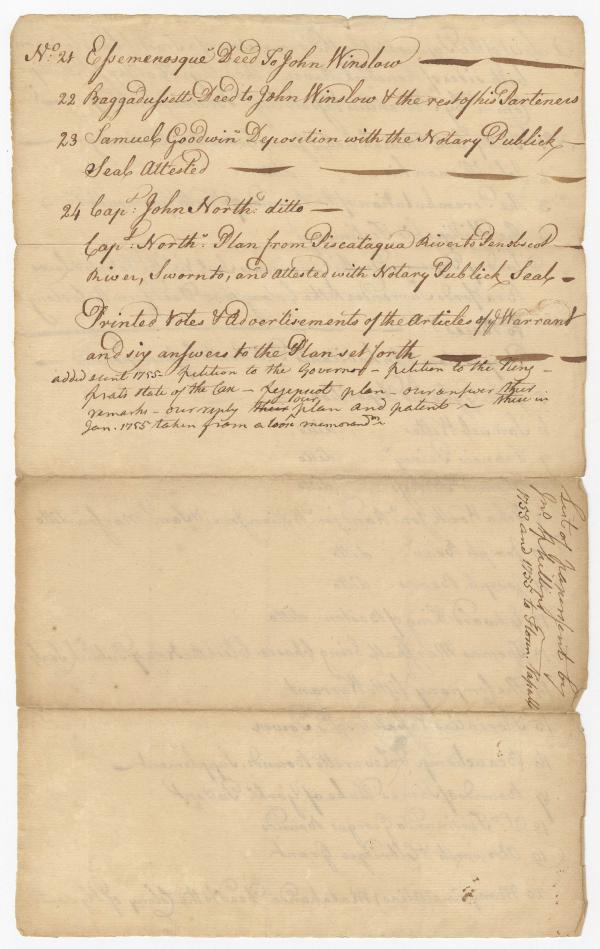 No. 21 Essemenosque Deed To John Winslow
22 Baggadussetts Deed to John Winslow & the rest of his Parteners
23 Samuel Goodwin Deposition with the Notary Publick
Seal Attested
24 Capt. John North ditto
Capt. North Plan from Piscataqua River to Penobscot
River, Sworn to, and Attested with Notary Publick Seal
Printed Votes & Advertisements of the Articles of ye Warrant
and six answers to the Plan set forth
added sent 1755 - petition to the Governor - petition to the King -
state of the Case - plan - our answer their
remarks - our reply their our plan and patent - these in
Jan. 1755 taken from a loose memorandm
List of papers sent by
Jno. Phillips
1753 and 1755 to Floren: Vassall